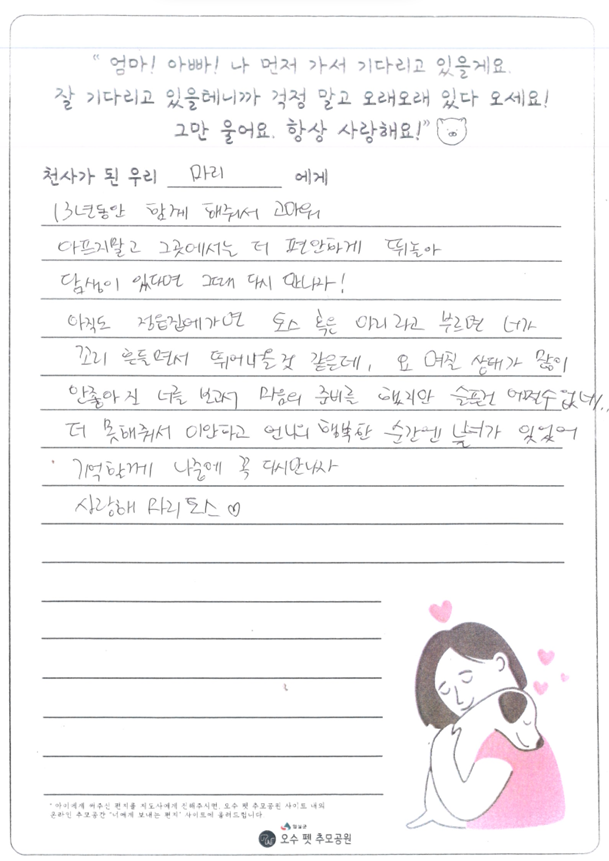 “ 엄마! 아빠! 나 먼저 가서 기다리고 있을게요.
잘 기다리고 있을테니까 걱정 말고 오래오래 있다 오세요!
그만 울어요. 항상 사랑해요!”
천사가 된 우리 마리 에게
13년동안 함께 해줘서 고마워
아프지말고 그곳에서는 더 편안하게 뛰놀아
담생이 있다면 그때 다시 만나자!
아직도 정읍집에가면 토스 혹은 마리라고 부르면 너가
꼬리 흔들면서 뛰어나올것 같은데, 요 며칠 상태가 많이
안좋아진 너를 보고서 마음의 준비를 했지만 슬픈건 어쩔수없네..
더 못해줘서 미안하고 언니의 행복한 순간엔 너가 있었어
기억할게 나중에 꼭 다시만나자
사랑해 마리토스 ♡
* 아이에게 써주신 편지를 지도사에게 전해주시면, 오수 펫 추모공원 사이트 내의
온라인 추모공간 "너에게 보내는 편지" 사이트에 올려드립니다.
임실군
오수 펫 추모공원